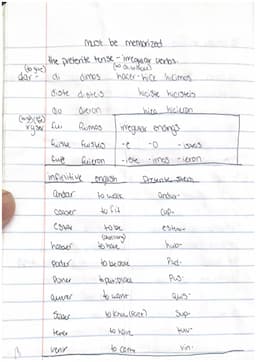 must be memorized
the preterite tense - irregular verbs
(to give) (to do, to make)
dar - di dimos hacer - hice hicimos
diste disteis hiciste hicisteis
dio dieron hizo hicieron
fui fuimos irregular endings
fuiste fuisteis -e -o -isteis
fue fueron -iste -imos -ieron
infinitive english preterite stem
andar to walk anduv-
caber to fit cup-
estar to be estuv-
(auxiliary)
haber to have hub-
poder to be able pud-
poner to put/place pus-
querer to want quis-
saber to know (fact) sup-
tener to have tuv-
venir to come vin-